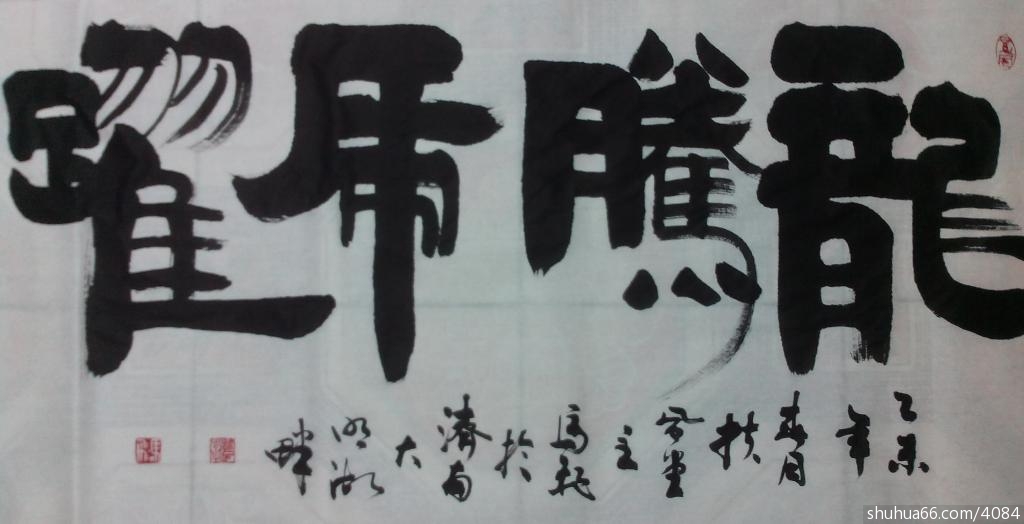 龍騰虎躍
乙未年春月扶
堂主
於濟南大明湖畔
shuhua66.com/4084